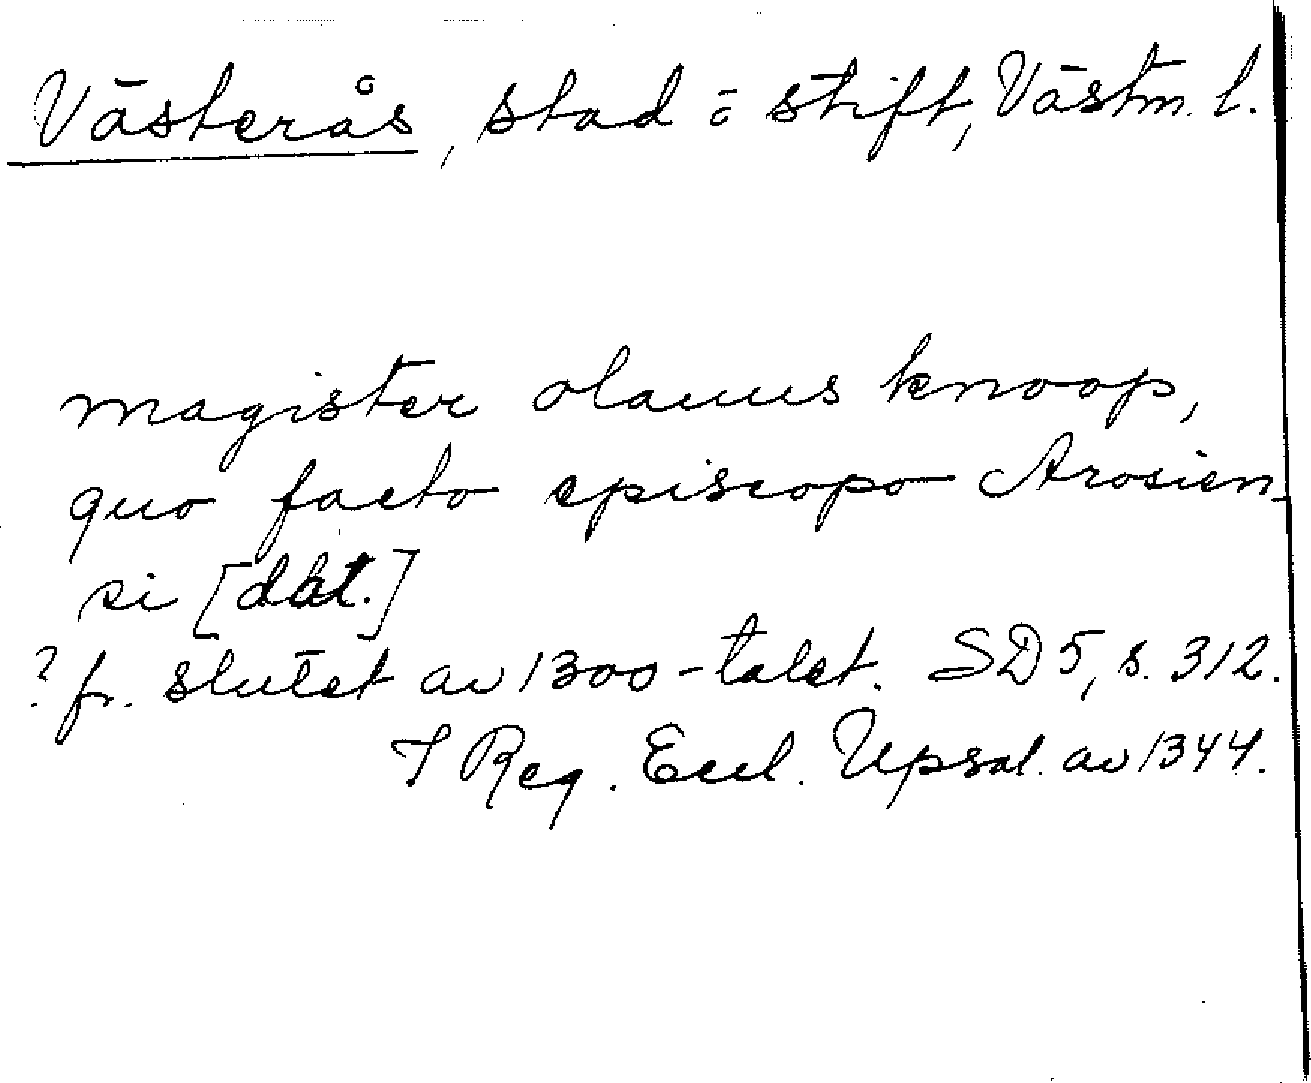 Västerås, stad o stift, Västm. l.
magister olauus knoop,
quo facto episcopo Arosien-
si [dat.]
? fr. slutet av 1300-talet. SD 5, s. 312.
I Reg. Eccl. Upsal. av 1344.